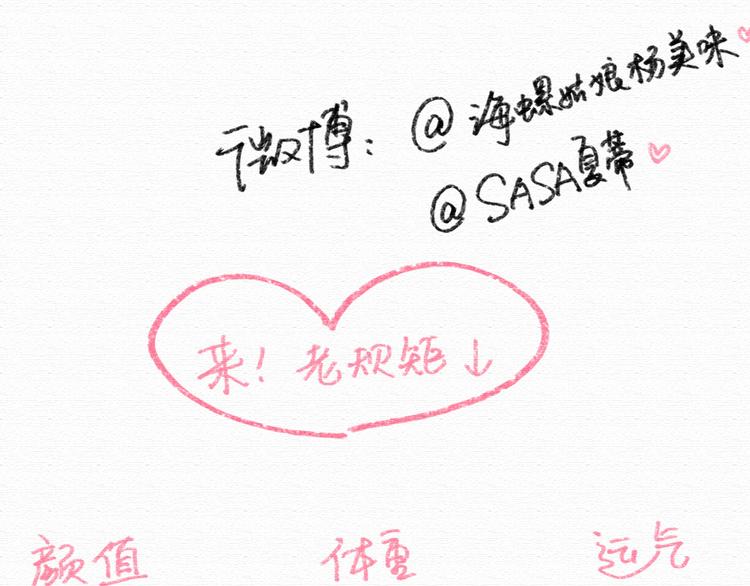 微博：@海螺姑娘杨美味
@SASA夏蒂
来！老规矩↓
颜值 体重 运气